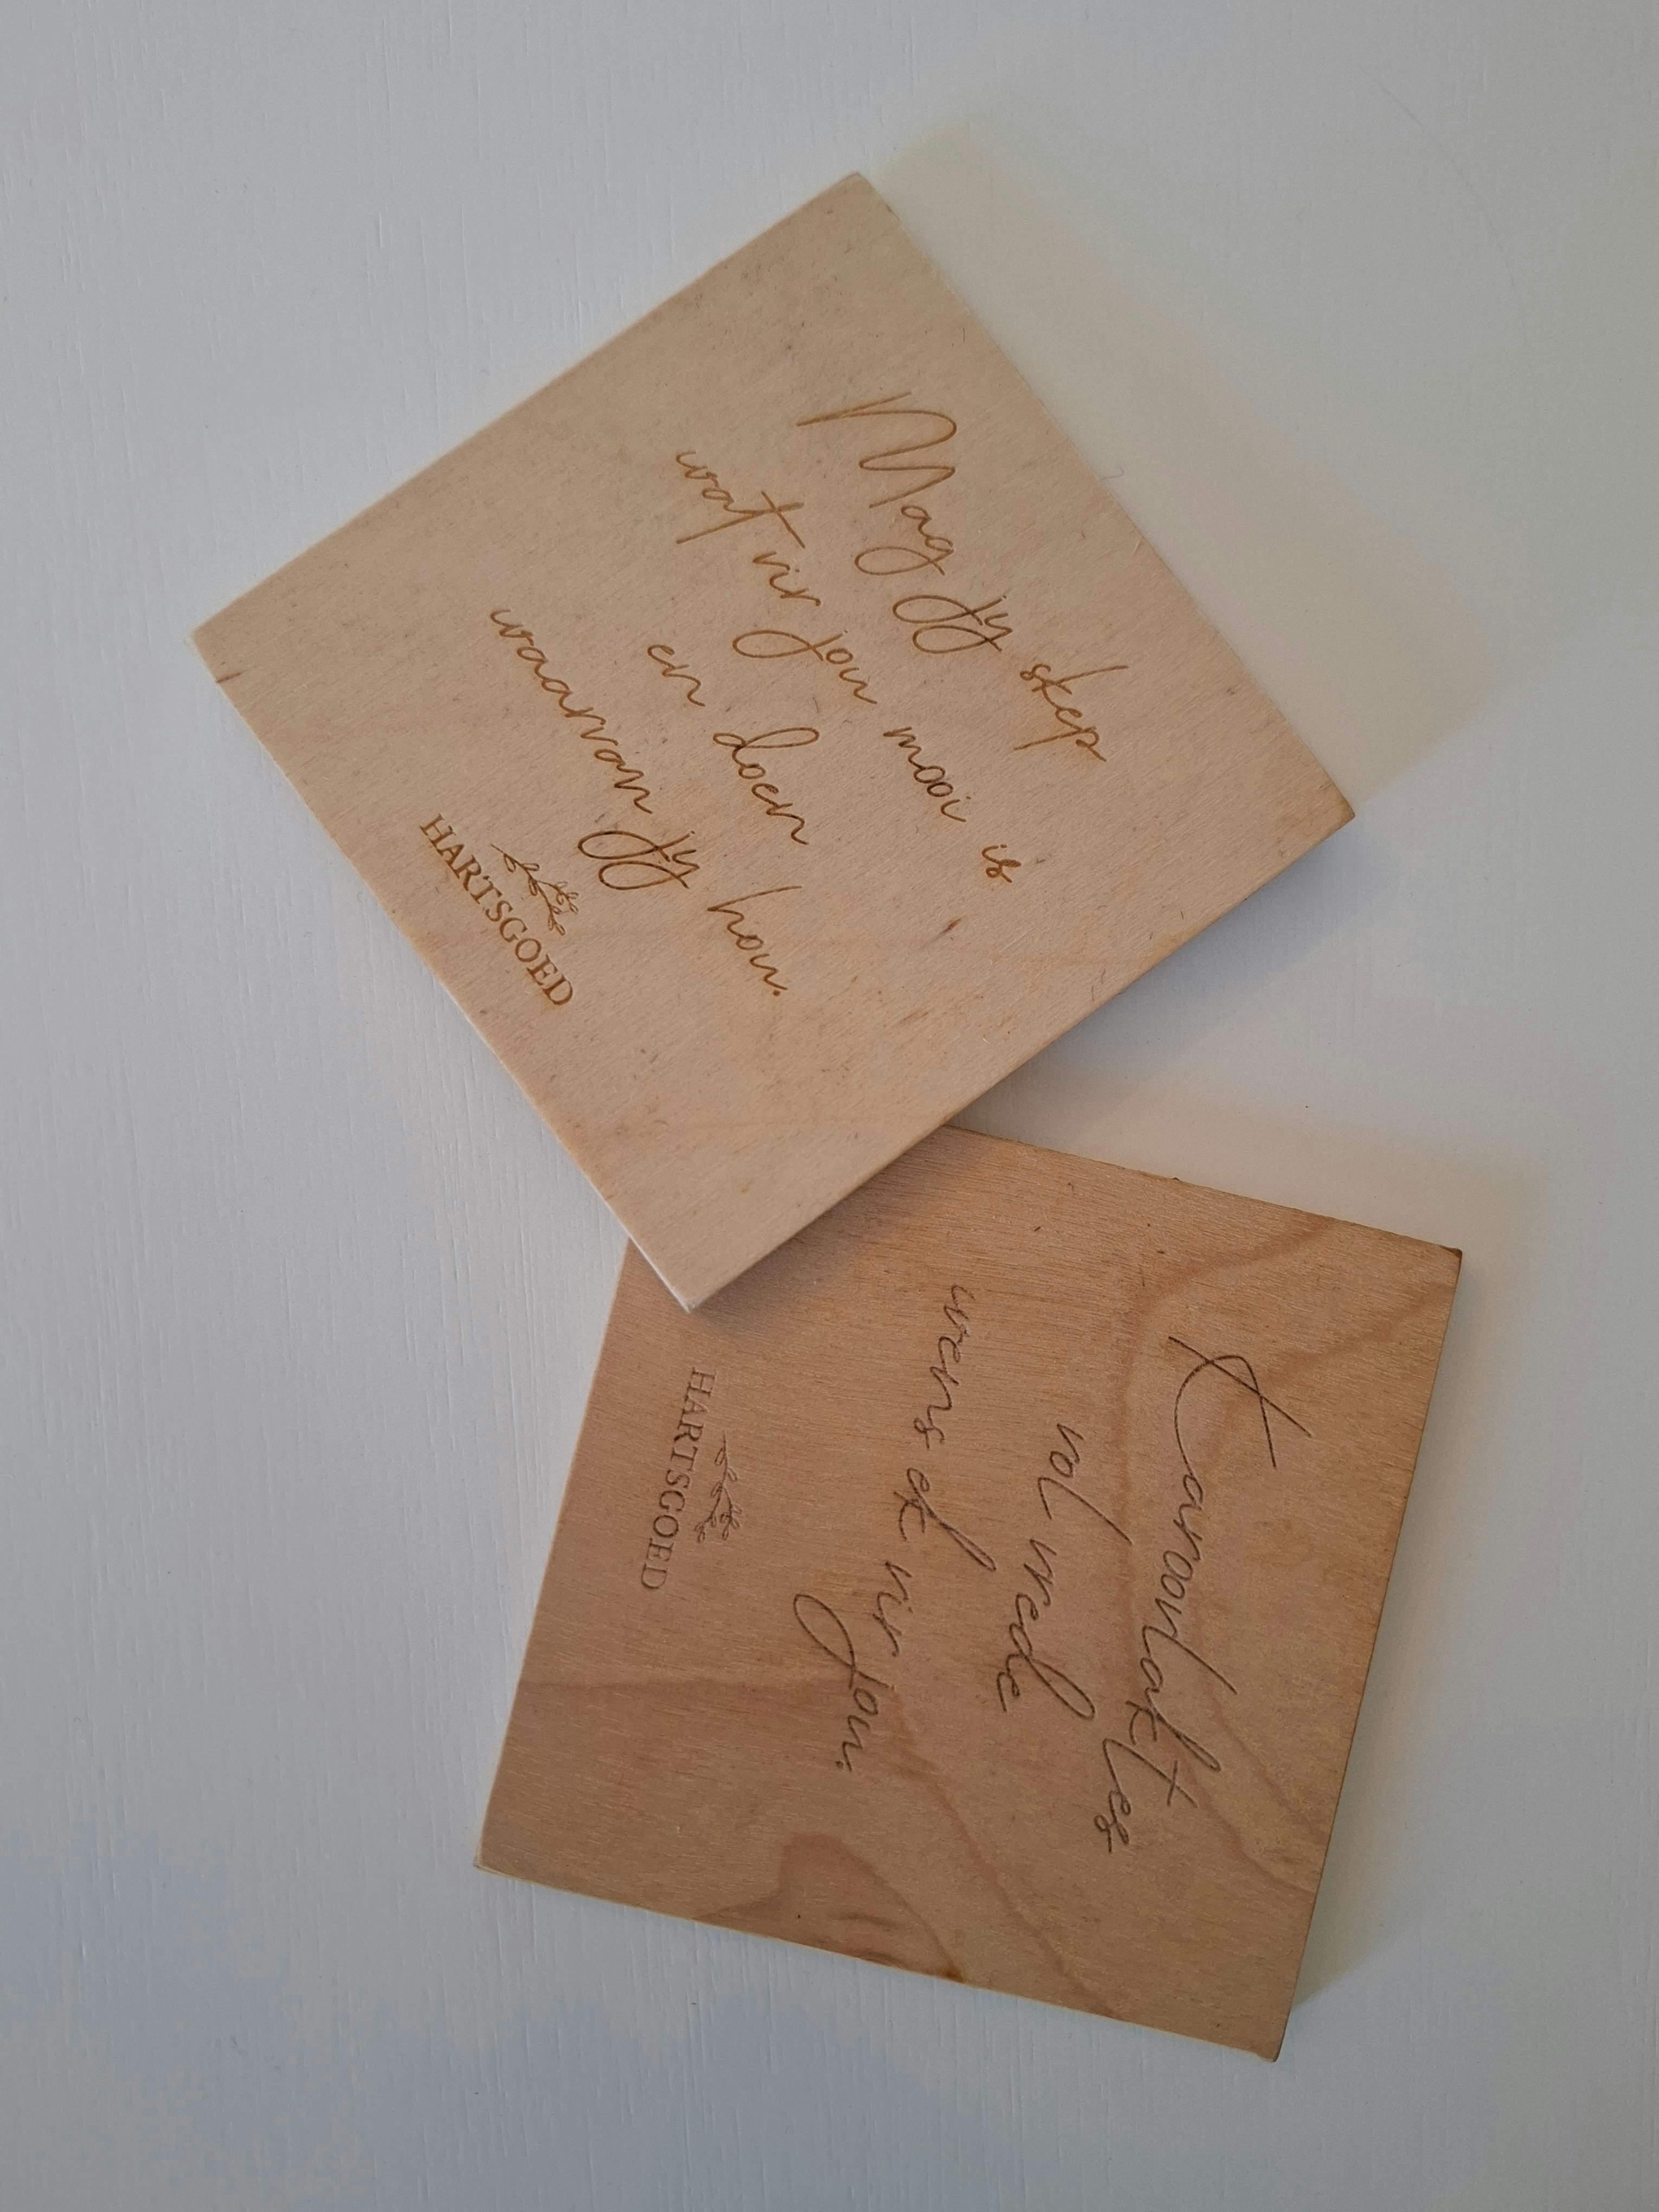 Mag jy skep
wat vir jou mooi is
en doen
waarvan jy hou.
HARTSGOED
Karoovlaktes
vol vrede
wens ek vir
jou.
HARTSGOED